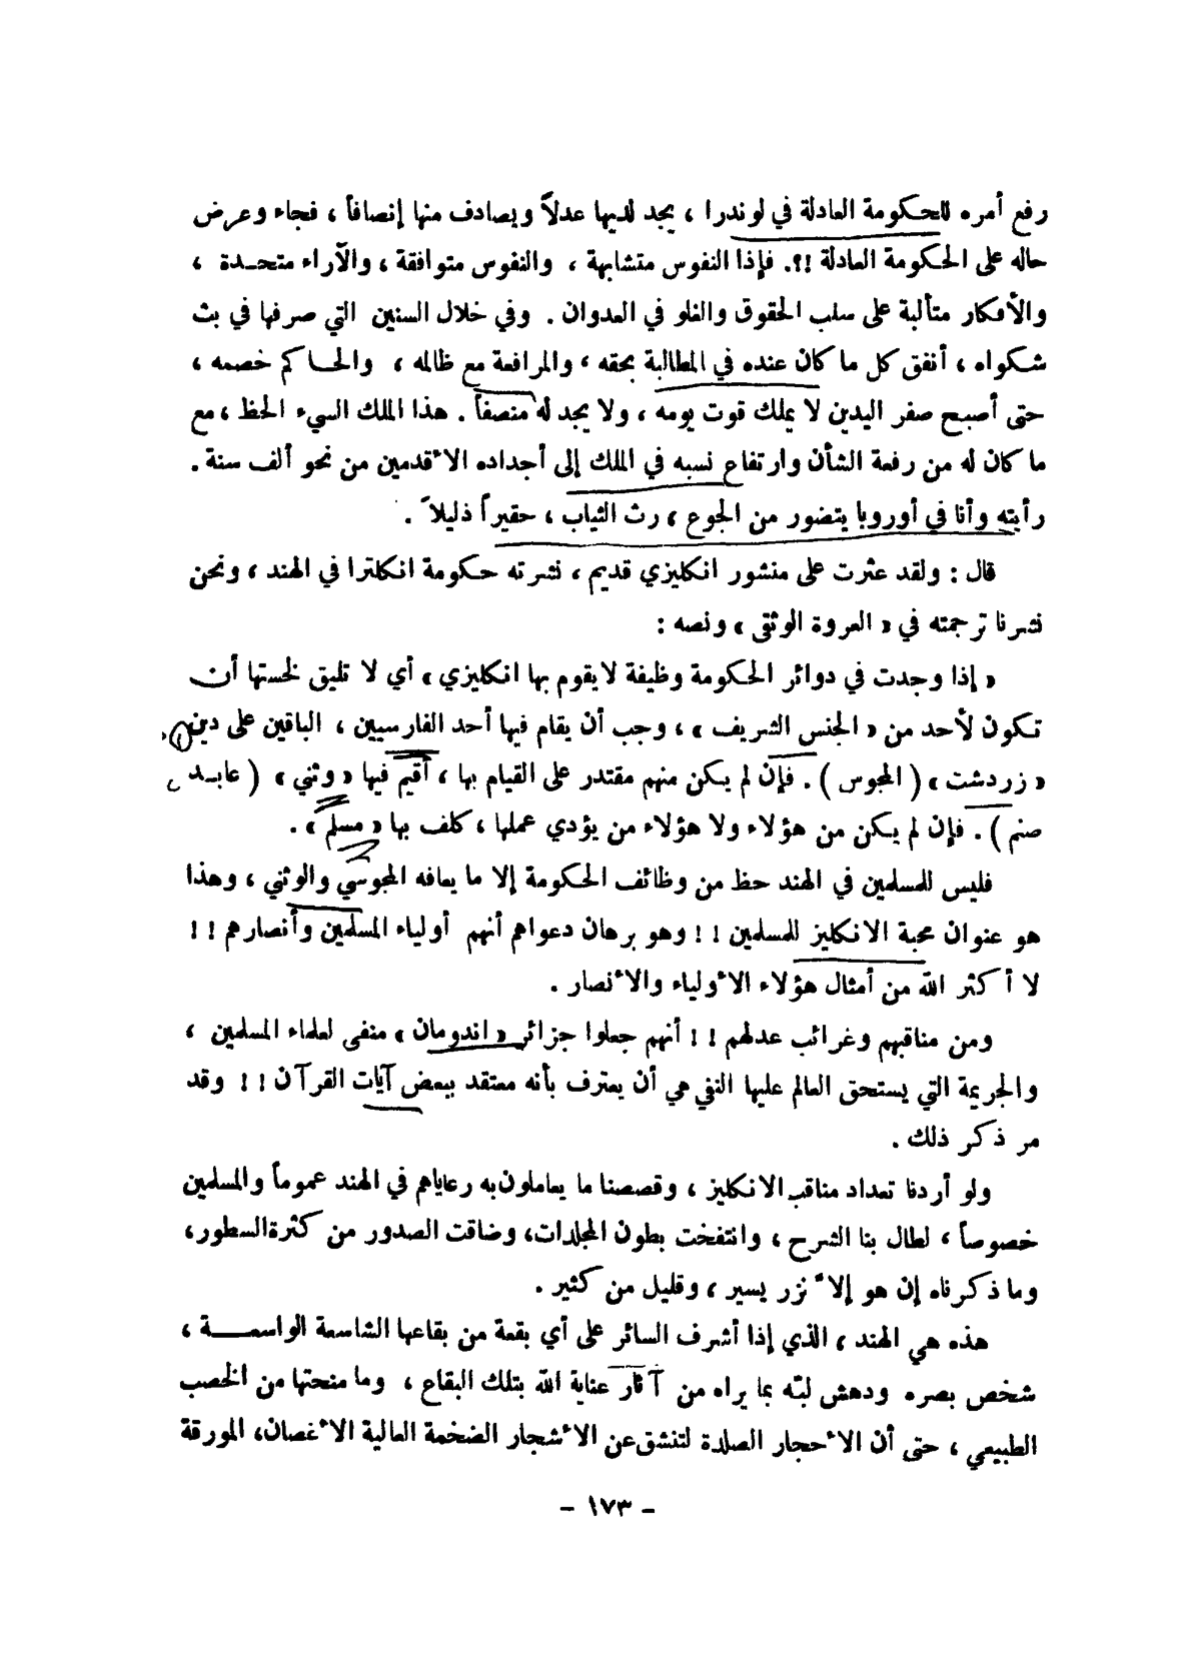 رفع أمره للحكومة العادلة في لوندرا ، يجد لديها عدلاً ويصادف منها إنصافاً ، فجاء وعرض
حاله على الحكومة العادلة !؟. فإذا النفوس متشابهة ، والنفوس متوافقة ، والآراء متحـدة ،
والأفكار متألبة على سلب الحقوق والغلو في العدوان . وفي خلال السنين التي صرفها في بث
شكواه ، أنفق كل ما كان عنده في المطالبة بحقه ، والمرافعة مع ظالمه ، والحـاكم خصمه ،
حتى أصبح صفر اليدين لا يملك قوت يومه ، ولا يجد له منصفاً . هذا الملك السيء الحظ ، مع
ما كان له من رفعة الشأن وارتفاع نسبه في الملك إلى أجداده الأقدمين من نحو ألف سنة .
رأيته وأنا في أوروبا يتضور من الجوع ، رث الثياب ، حقيراً ذليلاً .
قال : ولقد عثرت على منشور انكليزي قديم ، نشرته حكومة انكلترا في الهند ، ونحن
نشرنا ترجمته في « العروة الوثقى » ونصه :
« إذا وجدت في دوائر الحكومة وظيفة لايقوم بها انكليزي » أي لا تليق لخستها أن
تكون لأحد من « الجنس الشريف » ، وجب أن يقام فيها أحد الفارسيين ، الباقين على دين
« زردشت » ( المجوس ) . فإن لم يكن منهم مقتدر على القيام بها ، أقيم فيها « وثني » ( عابـد
صنم ) . فإن لم يكن من هؤلاء ولا هؤلاء من يؤدي عملها ، كلف بها « مسلم » .
فليس للمسلمين في الهند حظ من وظائف الحكومة إلا ما يعافه المجوسي والوثني ، وهذا
هو عنوان محبة الانكليز للمسلمين ! ! وهو برهان دعواهم أنهم أولياء المسلمين وأنصارهم ! !
لا أكثر الله من أمثال هؤلاء الأولياء والأنصار .
ومن مناقبهم وغرائب عدلهم ! ! أنهم جعلوا جزائر « اندومان » منفى لعلماء المسلمين ،
والجريمة التي يستحق العالم عليها النفي هي أن يعترف بأنه معتقد ببعض آيات القرآن ! ! وقد
مر ذكر ذلك .
ولو أردنا تعداد مناقب الانكليز ، وقصصنا ما يعاملون به رعاياهم في الهند عموماً والمسلمين
خصوصاً ، لطال بنا الشرح ، وانتفخت بطون المجلدات، وضاقت الصدور من كثرة السطور،
وما ذكرناه إن هو إلا نزر يسير ، وقليل من كثير .
هذه هي الهند ، الذي إذا أشرف السائر على أي بقعة من بقاعها الشاسعة الواسعـــة ،
شخص بصره ودهش لبّه بما يراه من آثار عناية الله بتلك البقاع ، وما منحتها من الخصب
الطبيعي ، حتى أن الأحجار الصلدة لتنشق عن الأشجار الضخمة العالية الأغصان، المورقة
- ١٧٣ -